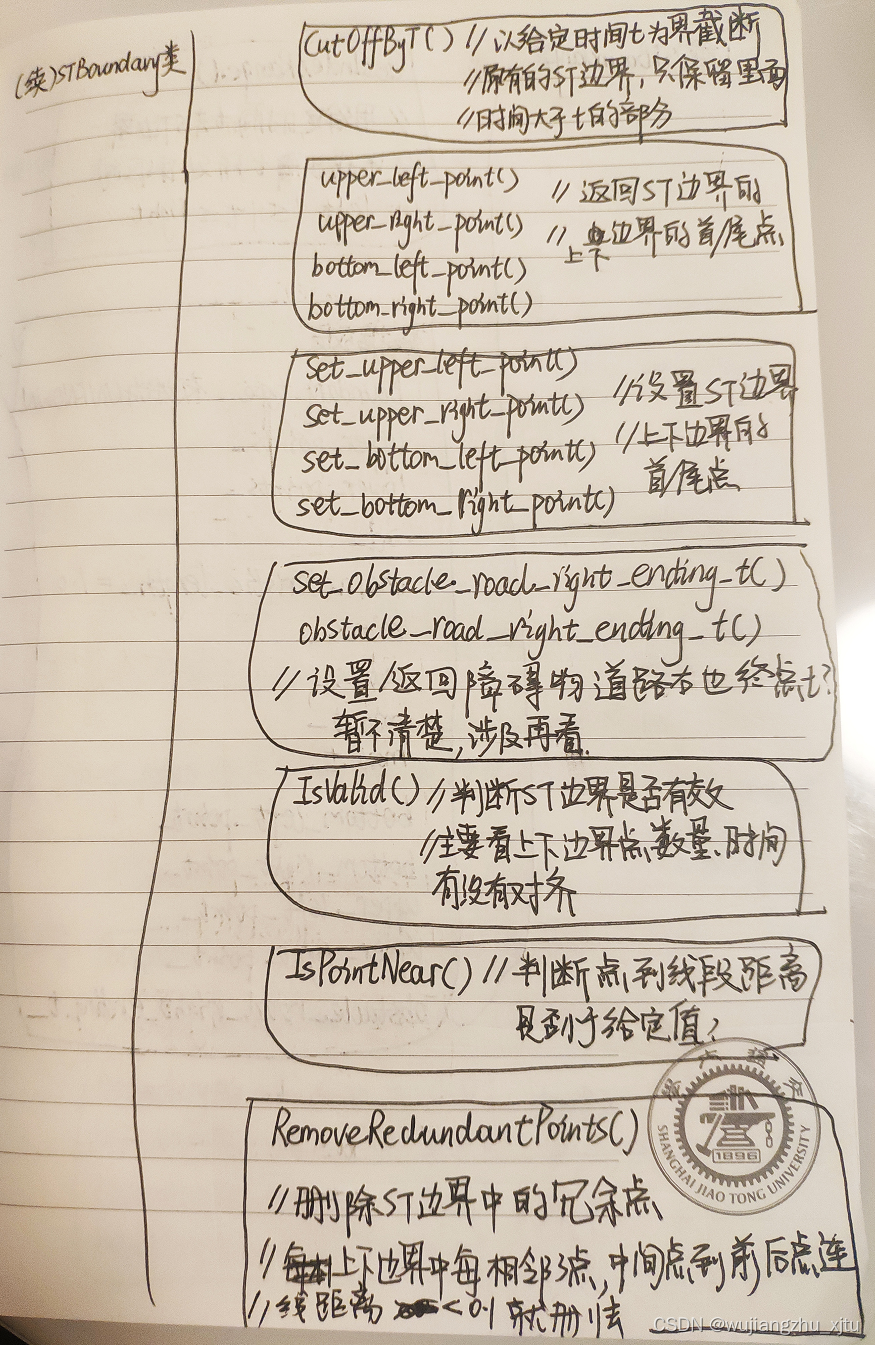 (续)STBoundary类
CutOffByT() // 以给定时间t为界截断
// 原有的ST边界, 只保留里面
// 时间大于t的部分
upper_left_point() // 返回ST边界的
upper_right_point() // 上下边界的首/尾点
bottom_left_point()
bottom_right_point()
set_upper_left_point()
set_upper_right_point() // 设置ST边界
set_bottom_left_point() // 上下边界的
set_bottom_right_point() 首/尾点
set_obstacle_road_right_ending_t()
obstacle_road_right_ending_t()
// 设置/返回障碍物道路右边终点t?
暂不清楚, 涉及再看.
IsValid() // 判断ST边界是否有效
// 主要看上下边界点数量、时间
有没有对齐
IsPointNear() // 判断点到线段距离
是否小于给定值?
RemoveRedundantPoints()
// 删除ST边界中的冗余点
// 上下边界中每相邻3点, 中间点到前后点连
// 线距离 < 0.1 就删去
1896
SHANGHAI JIAO TONG UNIVERSITY
CSDN @wujiangzhu_xjtu